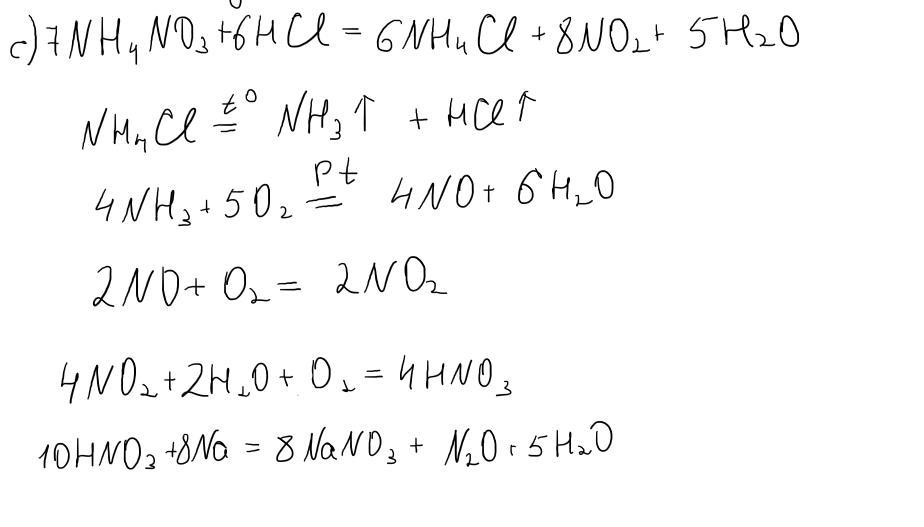 c) 7NH₄NO₃ + 6HCl = 6NH₄Cl + 8NO₂ + 5H₂O
NH₄Cl =t⁰ NH₃↑ + HCl↑
4NH₃ + 5O₂ =Pt 4NO + 6H₂O
2NO + O₂ = 2NO₂
4NO₂ + 2H₂O + O₂ = 4HNO₃
10HNO₃ + 8Na = 8NaNO₃ + N₂O + 5H₂O